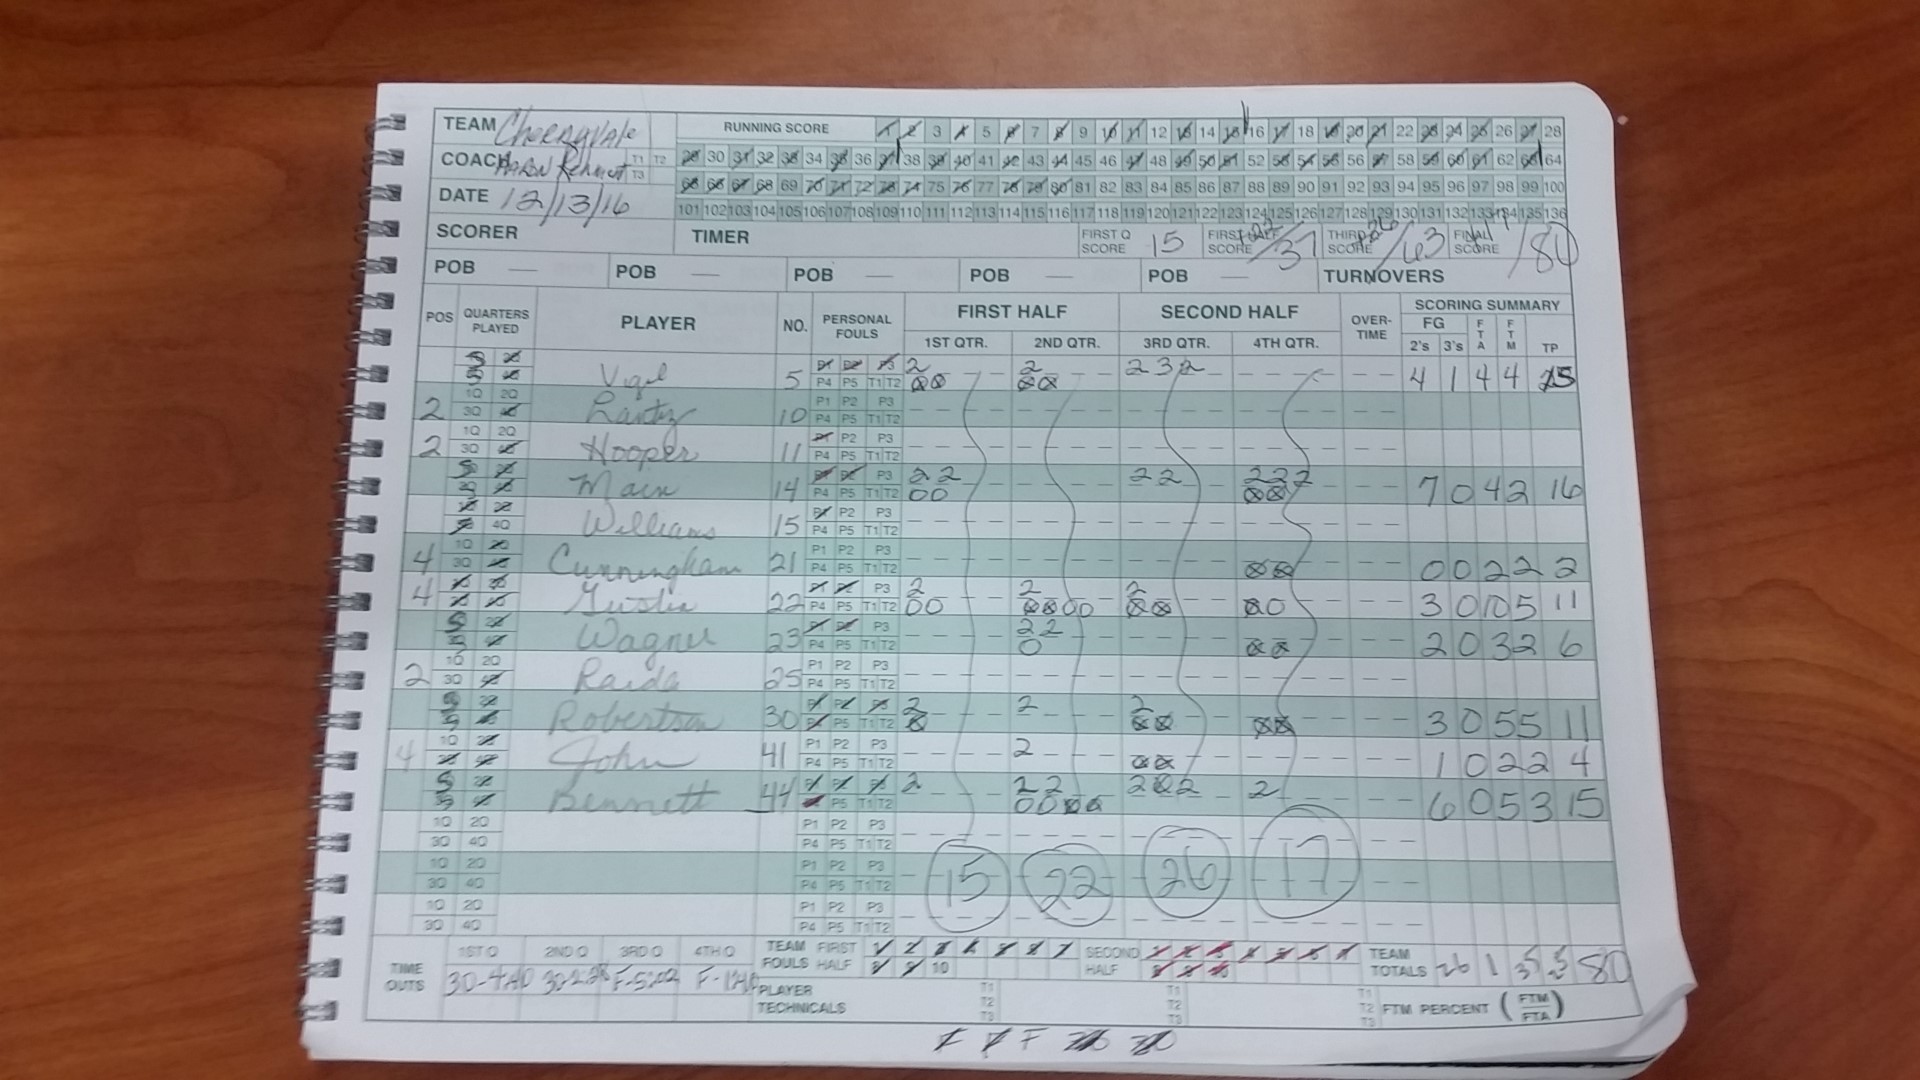 TEAM Cherryvale RUNNING SCORE 1 2 3 4 5 6 7 8 9 10 11 12 13 14 15 16 17 18 19 20 21 22 23 24 25 26 27 28
COACH Aaron T1 T2 T3 29 30 31 32 33 34 35 36 37 38 39 40 41 42 43 44 45 46 47 48 49 50 51 52 53 54 55 56 57 58 59 60 61 62 63 64
DATE 12/13/16 65 66 67 68 69 70 71 72 73 74 75 76 77 78 79 80 81 82 83 84 85 86 87 88 89 90 91 92 93 94 95 96 97 98 99 100
101 102 103 104 105 106 107 108 109 110 111 112 113 114 115 116 117 118 119 120 121 122 123 124 125 126 127 128 129 130 131 132 133 134 135 136
SCORER TIMER FIRST Q SCORE 15 FIRST HALF SCORE 22/37 THIRD Q SCORE 26/63 FINAL SCORE 17/80
POB POB POB POB POB TURNOVERS
POS QUARTERS PLAYED PLAYER NO. PERSONAL FOULS FIRST HALF 1ST QTR. 2ND QTR. SECOND HALF 3RD QTR. 4TH QTR. OVER-TIME SCORING SUMMARY FG 2's 3's FTA FTM TP
Vigil 5 P1 P2 P3 P4 P5 T1 T2 2 2 2 3 2 4 1 4 4 15
2 1Q 2Q 3Q 4Q Lantz 10 P1 P2 P3 P4 P5 T1 T2
2 1Q 2Q 3Q 4Q Hooper 11 P1 P2 P3 P4 P5 T1 T2
Main 14 P1 P2 P3 P4 P5 T1 T2 2 2 2 2 2 2 2 7 0 4 2 16
Williams 15 P1 P2 P3 P4 P5 T1 T2
4 1Q 2Q 3Q 4Q Cunningham 21 P1 P2 P3 P4 P5 T1 T2 0 0 2 2 2
4 22 P1 P2 P3 P4 P5 T1 T2 2 2 2 3 0 10 5 11
Wagner 23 P1 P2 P3 P4 P5 T1 T2 2 2 2 0 3 2 6
2 1Q 2Q 3Q 4Q Raida 25 P1 P2 P3 P4 P5 T1 T2
Robertson 30 P1 P2 P3 P4 P5 T1 T2 2 2 2 3 0 5 5 11
4 1Q 2Q 3Q 4Q John 41 P1 P2 P3 P4 P5 T1 T2 2 1 0 2 2 4
Bennett 44 P1 P2 P3 P4 P5 T1 T2 2 2 2 2 2 2 6 0 5 3 15
1Q 2Q 3Q 4Q P1 P2 P3 P4 P5 T1 T2
1Q 2Q 3Q 4Q P1 P2 P3 P4 P5 T1 T2 15 22 26 17
1Q 2Q 3Q 4Q P1 P2 P3 P4 P5 T1 T2
TIME OUTS 1ST Q 2ND Q 3RD Q 4TH Q TEAM FOULS FIRST HALF 1 2 3 4 5 6 7 8 9 10 SECOND HALF 1 2 3 4 5 6 7 8 9 10 TEAM TOTALS 26 1 80
PLAYER TECHNICALS T1 T2 T3 T1 T2 T3 T1 T2 T3 FTM PERCENT (FTM/FTA)